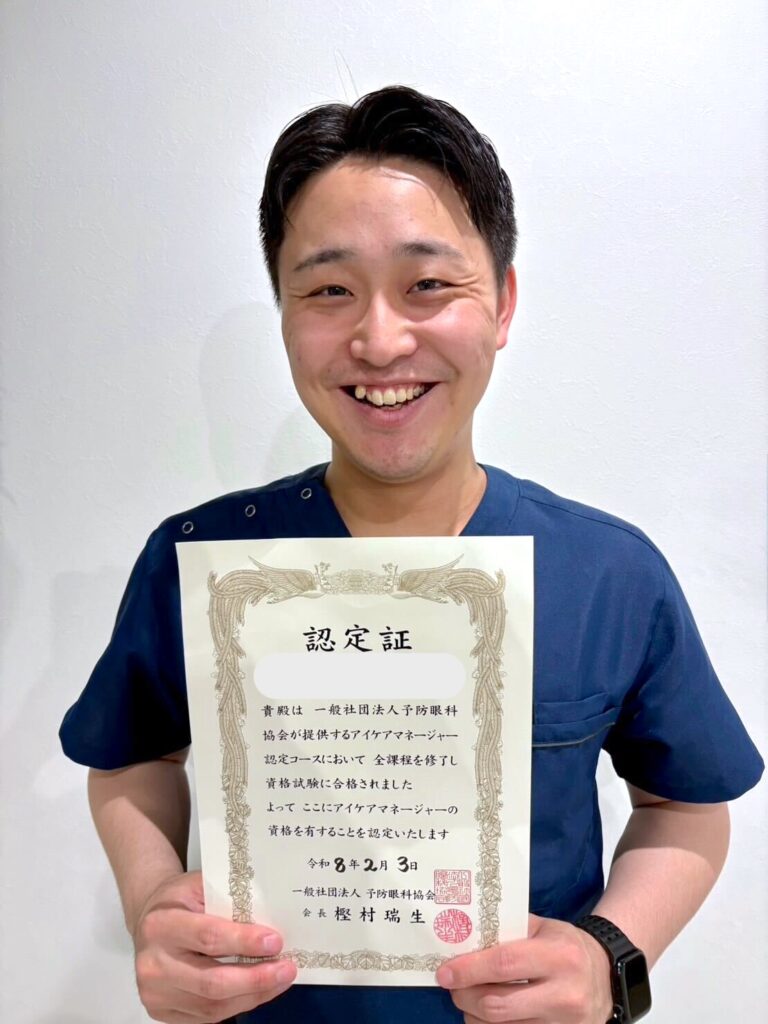 認定証
貴殿は 一般社団法人予防眼科
協会が提供するアイケアマネージャー
認定コースにおいて 全課程を修了し
資格試験に合格されました
よって ここにアイケアマネージャーの
資格を有することを認定いたします
令和8年2月3日
一般社団法人 予防眼科協会
会長 樫村瑞生